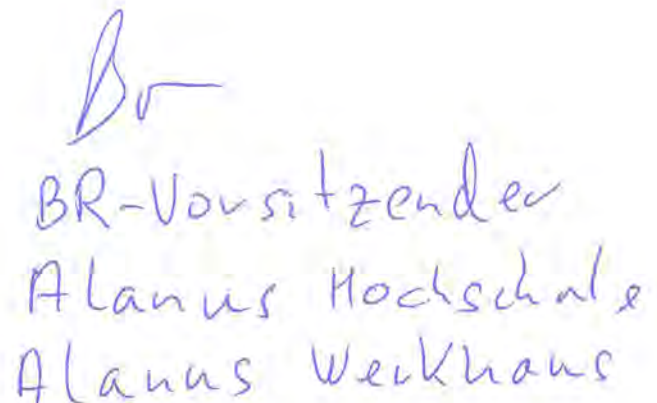 BR-Vorsitzender
Alanus Hochschule
Alanus Werkhaus